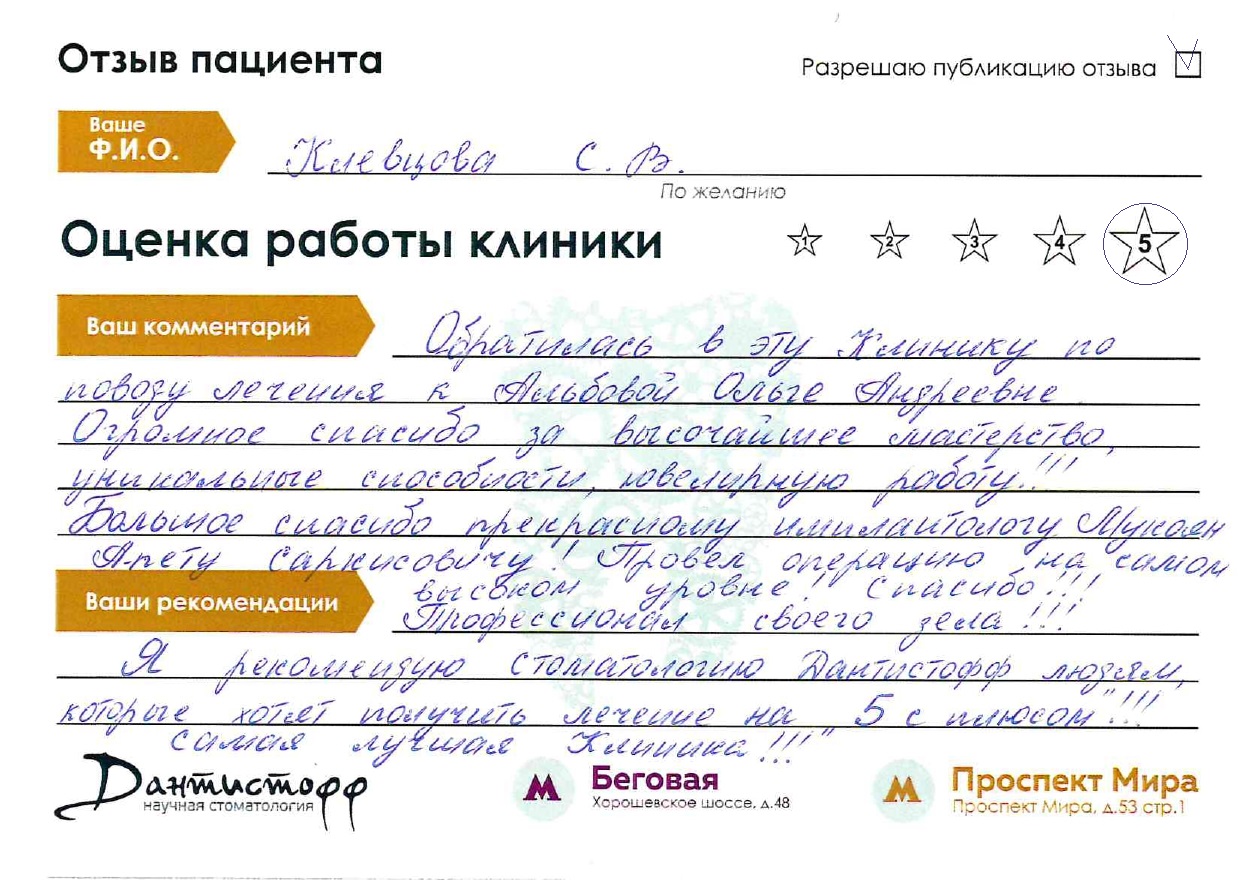 Отзыв пациента
Разрешаю публикацию отзыва
Ваше
Ф.И.О.
Клевцова С. В.
По желанию
Оценка работы клиники
1 2 3 4 5
Ваш комментарий
Обратилась в эту Клинику по
поводу лечения к Альбовой Ольге Андреевне
Огромное спасибо за высочайшее мастерство,
уникальные способности, ювелирную работу!!!
Большое спасибо прекрасному имплантологу Мукоян
Арету Саркисовичу! Провел операцию на самом
высоком уровне! Спасибо!!!
Ваши рекомендации
Профессионал своего дела!!!
Я рекомендую стоматологию Дантистофф людям,
которые хотят получить лечение на "5 с плюсом"!!!
Самая лучшая Клиника!!!"
Дантистофф
научная стоматология
М Беговая
Хорошевское шоссе, д.48
М Проспект Мира
Проспект Мира, д.53 стр.1